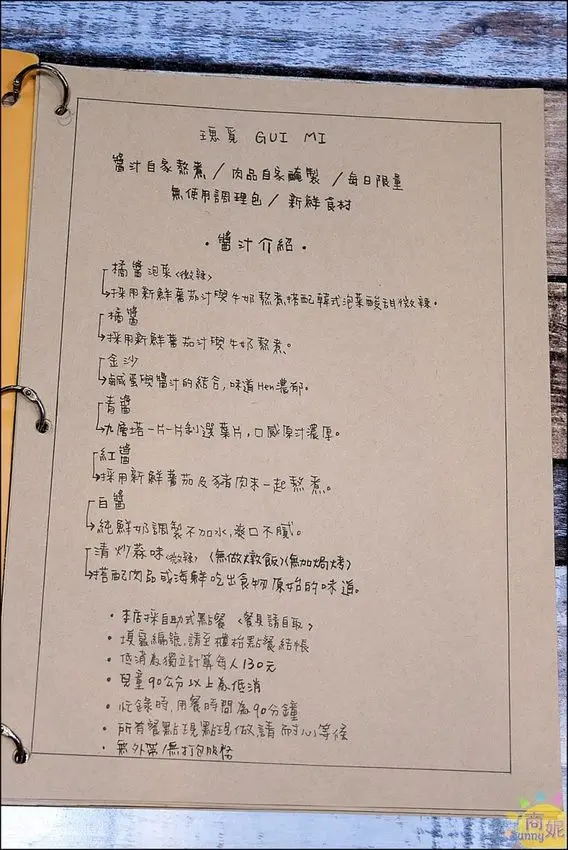 瑰覓 GUI MI
醬汁自家熬煮/肉品自家醃製/每日限量
無使用調理包/新鮮食材
·醬汁介紹·
橘醬泡菜<微辣>
→採用新鮮蕃茄汁喫牛奶熬煮搭配韓式泡菜酸甜微辣。
橘醬
→採用新鮮蕃茄汁喫牛奶熬煮。
金沙
→鹹蛋喫醬汁的結合,味道Hen濃郁。
青醬
→九層塔一片一片剝選葉片,口感原汁濃厚。
紅醬
→採用新鮮蕃茄及豬肉末一起熬煮。
白醬
→純鮮奶調製不加水,爽口不膩。
清炒蒜味<微辣> (無做燉飯)(無加焗烤)
→搭配肉品或海鮮吃出食物原始的味道。
·本店採自助式點餐 <餐具請自取>
·填寫編號,請至櫃枱點餐結帳
·低消為獨立計算每人130元
·兒童90公分以上為低消
·忙錄時,用餐時間為90分鐘
·所有餐點現點現做請耐心等候
·無外帶/無打包服務
商妮
Sunny